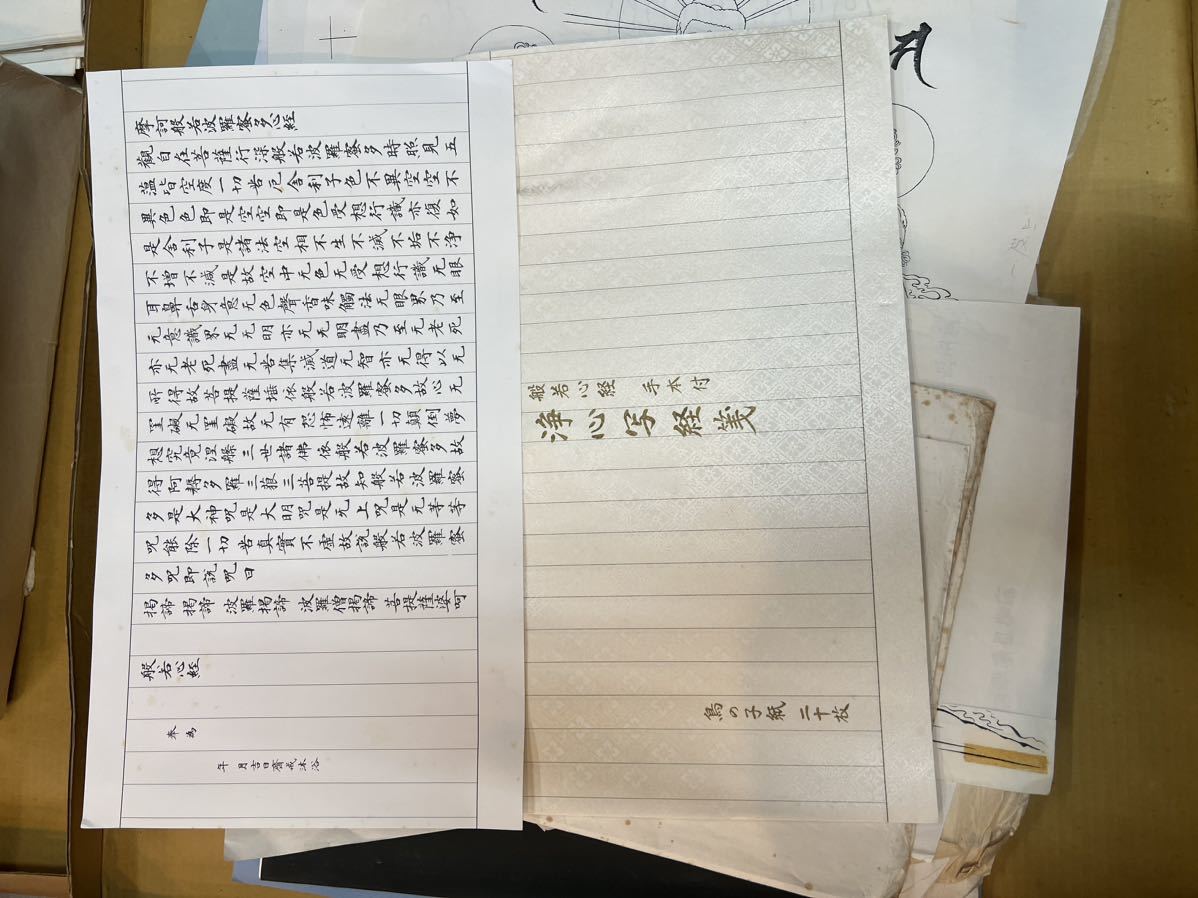 摩訶般若波羅蜜多心経
觀自在菩薩行深般若波羅蜜多時照見五
蘊皆空度一切苦厄舎利子色不異空空不
異色色即是空空即是色受想行識亦復如
是舎利子是諸法空相不生不滅不垢不浄
不增不減是故空中无色无受想行識无眼
耳鼻舌身意无色聲香味觸法无眼界乃至
无意識界无无明亦无无明盡乃至无老死
亦无老死盡无苦集滅道无智亦无得以无
所得故菩提薩埵依般若波羅蜜多故心无
罣礙无罣礙故无有恐怖遠離一切顛倒夢
想究竟涅槃三世諸佛依般若波羅蜜多故
得阿耨多羅三藐三菩提故知般若波羅蜜
多是大神呪是大明呪是无上呪是无等等
呪能除一切苦真實不虚故説般若波羅蜜
多呪即説呪曰
掲諦掲諦波羅掲諦波羅僧掲諦菩提薩婆呵
般若心経
奉為
年月吉日齋戒沐浴
般若心経 手本付
浄心写経箋
鳥の子紙 二十枚